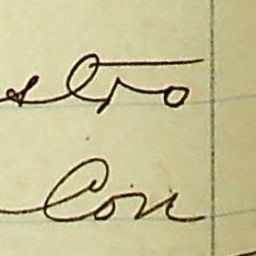 stro
Con